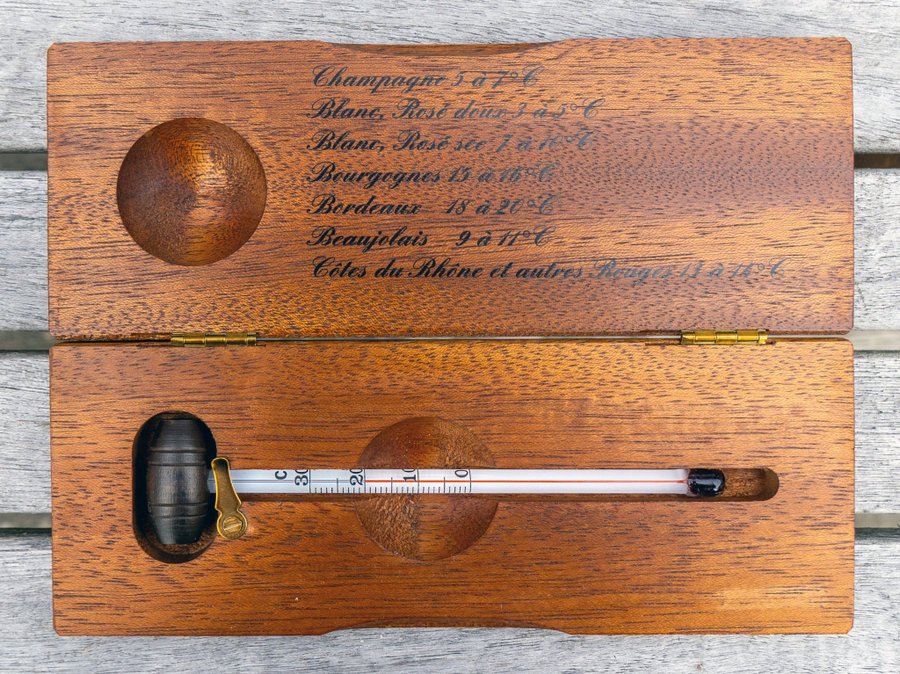 Champagne 5 à 7°C
Blanc, Rosé doux 3 à 5°C
Blanc, Rosé sec 7 à 10°C
Bourgognes 15 à 16°C
Bordeaux 18 à 20°C
Beaujolais 9 à 11°C
Côtes du Rhône et autres Rouges 13 à 14°C
C 30 20 10 0